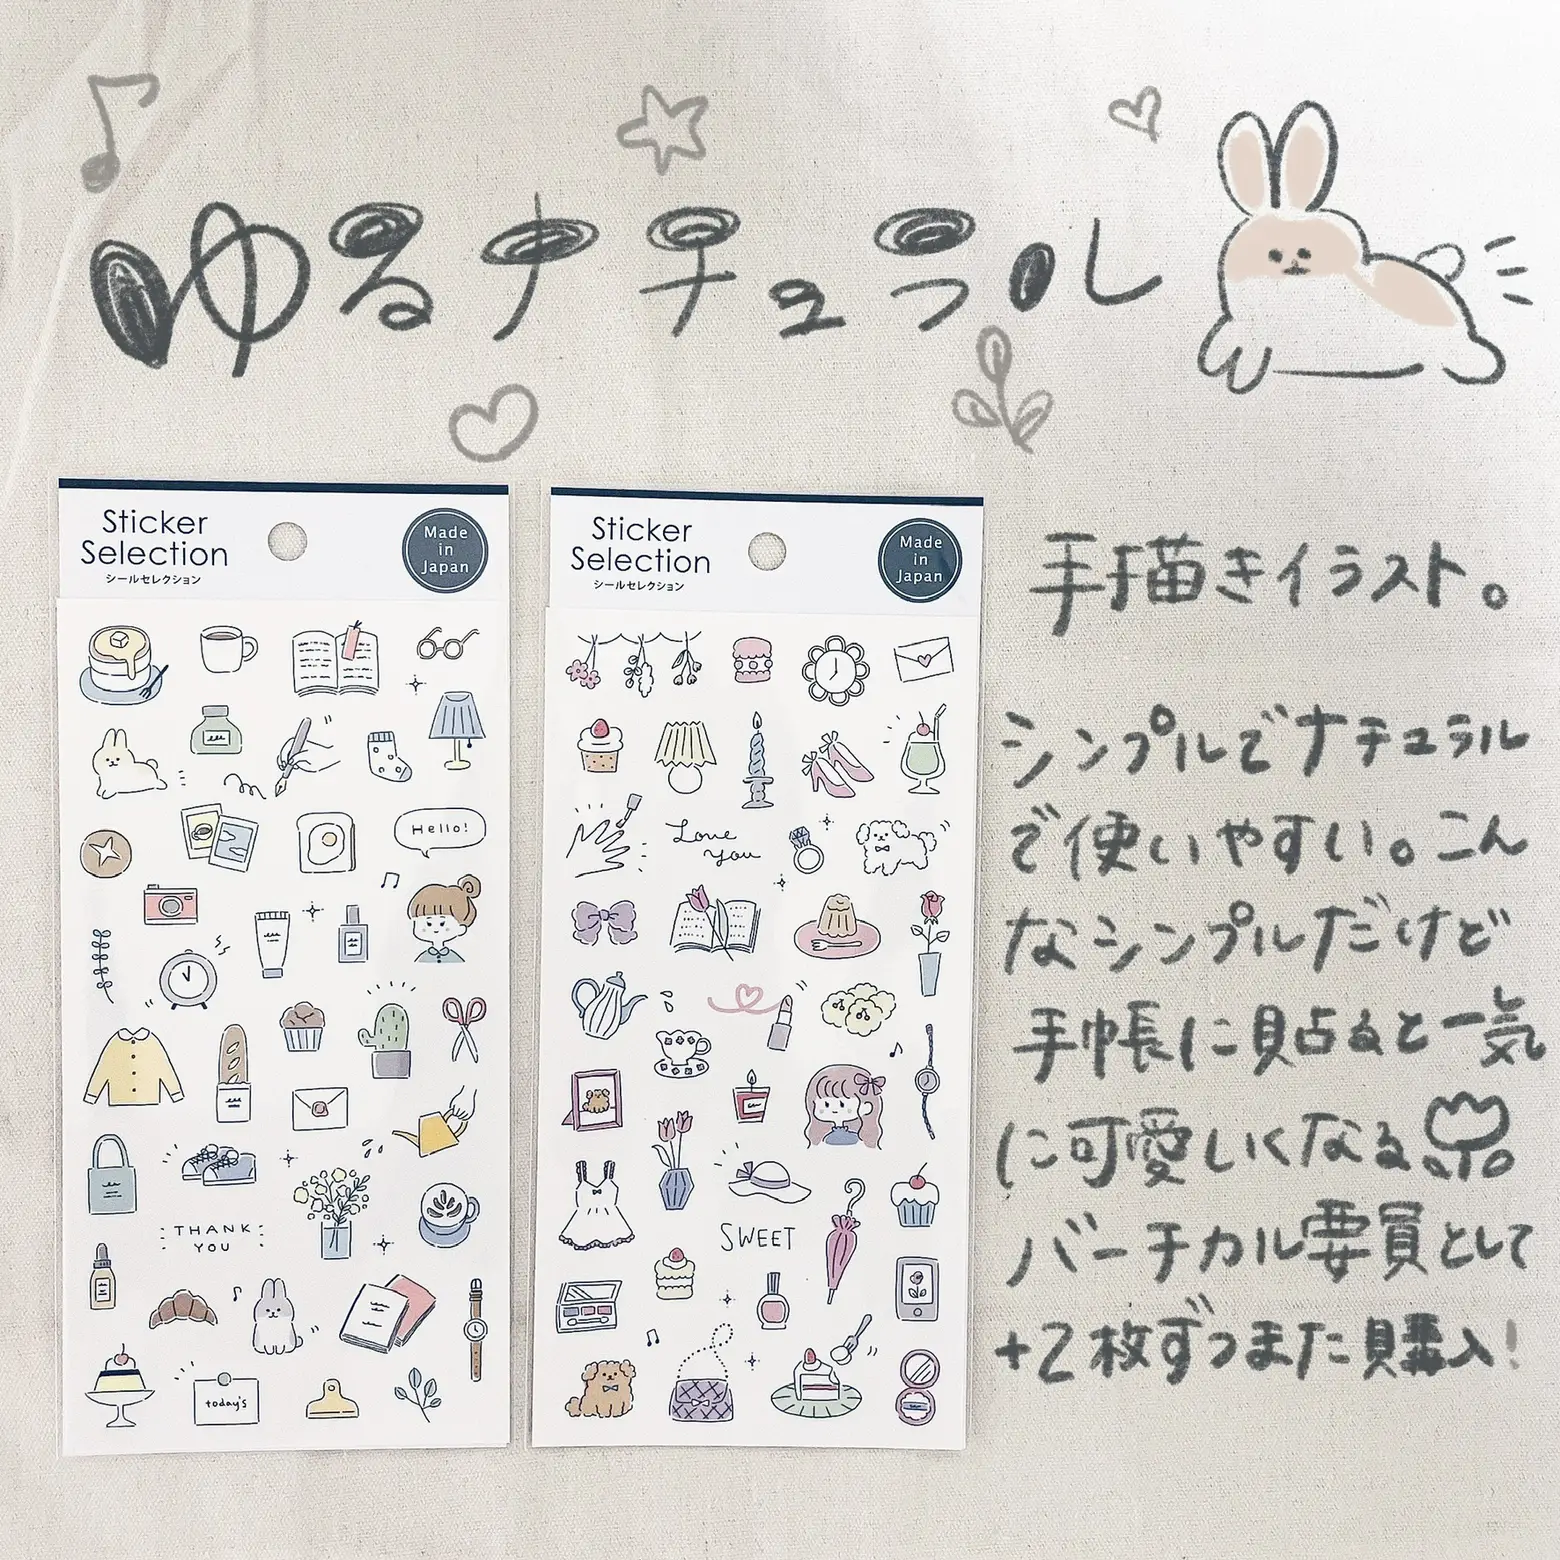 ゆるナチュラル
Sticker
Selection
シールセレクション
Made
in
Japan
Hello!
THANK
YOU
today's
Sticker
Selection
シールセレクション
Made
in
Japan
Love
You
SWEET
手描きイラスト。
シンプルでナチュラル
で使いやすい。こん
なシンプルだけど
手帳に貼ると一気
に可愛くなる
バーチカル要員として
+2枚ずつまた購入!